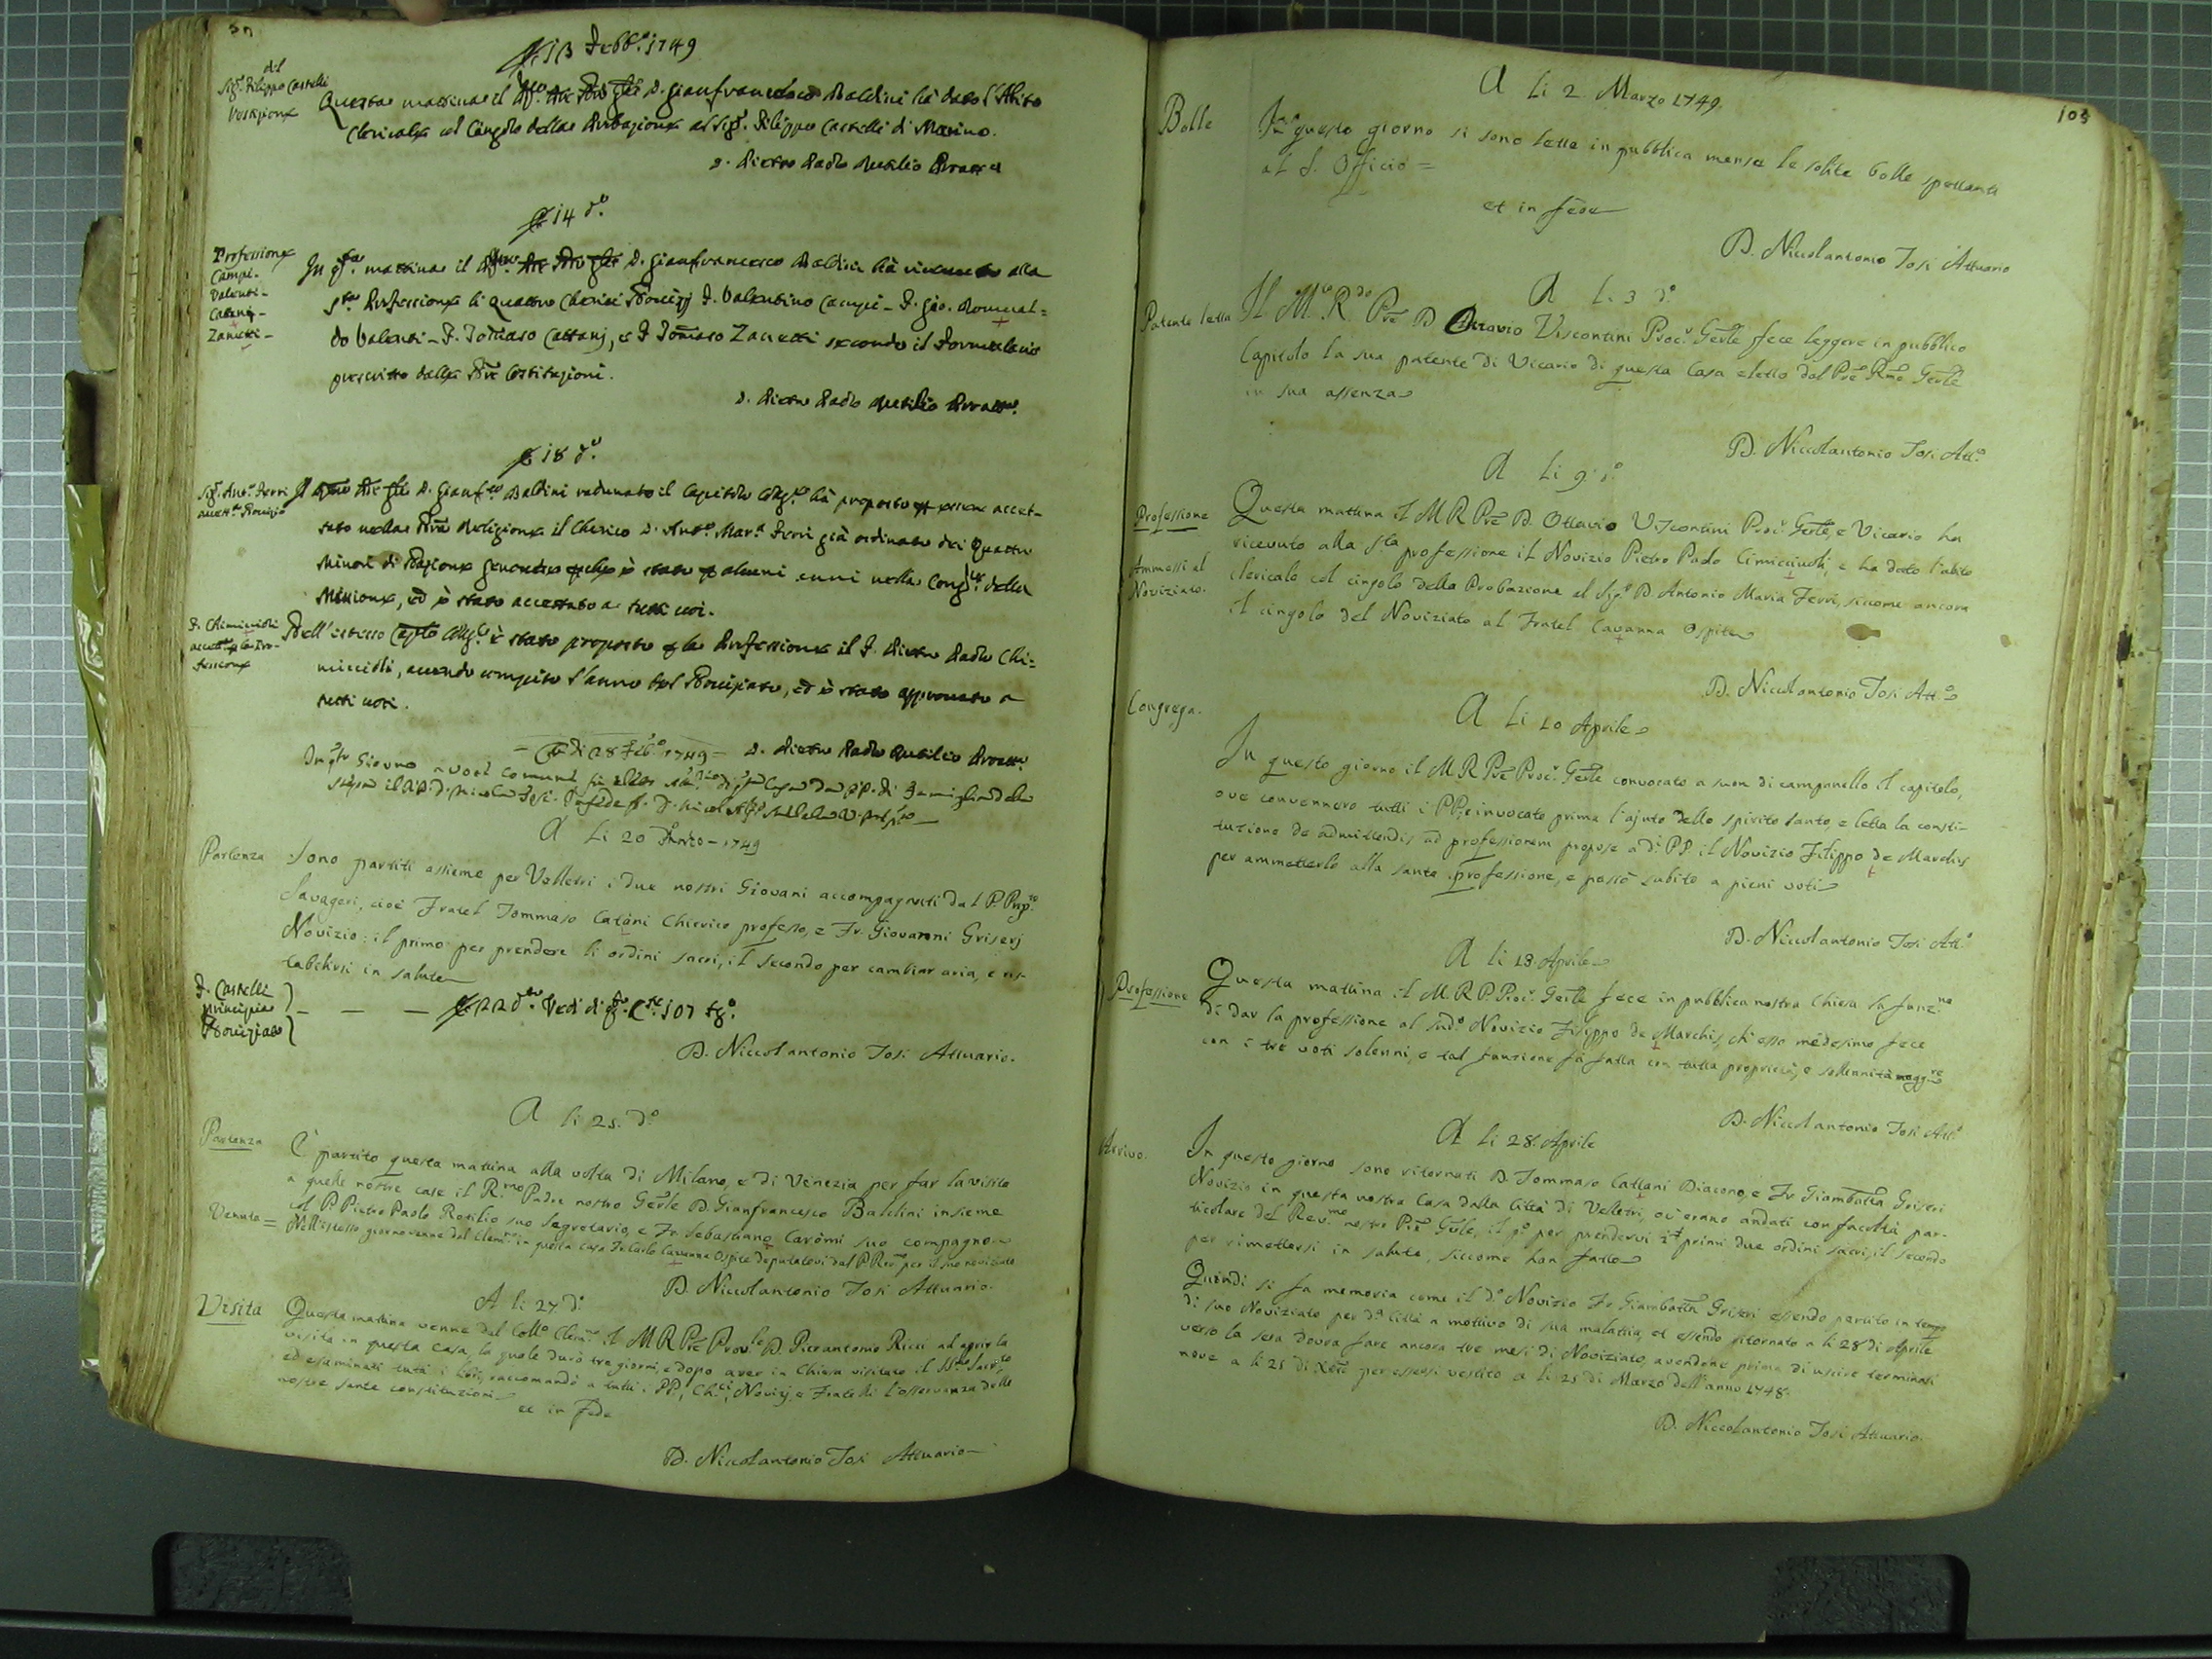 A 13 Febb.º 1749
del
Sig.r Filippo Castelli
Vestizione
Questa mattina il D. Gianfrancesco Baldini hà dato l'Abito
Clericale col Cingolo della Probazione al Sig.r Filippo Castelli di Marino.
D. Pietro Paolo Rosilio
A 14 d.º
Professione
Campi-
Valenti-
Cattani-
Zanetti-
In q.ta mattina il D. Gianfrancesco Baldini hà ricevuto alla
S.ta Professione li quattro Cherici Novizj F. Valentino Campi - F. Gio. Romual=
do Valenti - F. Tomaso Cattanj, e F. Tomaso Zanetti secondo il Formolario
prescritto dalle Nre Costituzioni.
D. Pietro Paolo Rosilio
A 18 d.º
Sig.r Ant.º Ferri
accett.to Novizio
Il D. Gianf.co Baldini radunato il Capitolo hà proposto essere accet-
tato nella Nra Religione il Cherico D. Ant.º Mar.a Ferri già ordinato dei Quattro
Minori di Nazione è stato alcuni anni nella Cong.ne della
Missione, ed è stato accettato a tutti voti.
accett.º
fessione
Nell'istesso è stato proposto la Professione il F. Pietro Paolo Chi=
miccioli, avendo compito l'anno del Noviziato, ed è stato approvato a
tutti voti.
D. Pietro Paolo Rosilio
di 28 Feb.º 1749
In q.to Giorno a voti comuni
A Li 20 1749
Partenza
Sono partiti assieme per Velletri i due nostri Giovani accompagnati dal P. Prep.to
Savageri, cioè Fratel Tommaso Catàni Chierico professo, e Fr. Giovanni Griserj
Novizio: il primo per prendere li ordini sacri, il secondo per cambiar aria, e ris-
tabilirsi in salute
F. Castelli
principia
Noviziato
A 22 d.º Vedi di q.to C.te 107
D. Niccolantonio Tosi Attuario.
A li 25. D.º
Partenza
È partito questa mattina alla volta di Milano, e di Venezia per far la visita
a quelle nostre case il R.mo Padre nostro Gēnle D. Gianfrancesco Baldini insieme
col P. Pietro Paolo Rosilio suo Segretario, e Fr. Sebastiano Caròmi suo compagno
Venuta =
Nell'istesso giorno venne dal Clem.º in questa casa Fr. Carlo Cavanna Ospite deputatovi dal P. Rmo per il suo noviziato
D. Niccolantonio Tosi Attuario.
A li 27. D.º
Visita
Questa mattina venne dal Coll.º Clem.º il M R Pre Prov.le D. Pietrantonio Ricci ad aprir la
visita in questa Casa, la quale durò tre giorni, e dopo aver in Chiesa visitato il SS.mo Sacr.to
ed esaminati tutti i libri, raccomandò a tutti i PP, Ch.ci, Novizj, e Fratelli l'osservanza delle
nostre sante constituzioni
et in Fede
D. Niccolantonio Tosi Attuario
105
A Li 2. Marzo 1749.
Bolle
In questo giorno si sono lette in pubblica mensa le solite bolle spettanti
al S. Officio =
et in fede
D. Niccolantonio Tosi Attuario
A Li 3 d.º
Patente letta
Il M.to R.do Pre D. Ottavio Viscontini Proc.r Gēnle fece leggere in pubblico
Capitolo la sua patente di Vicario di questa Casa eletto dal Pre Rmo Gēnle
in sua assenza
D. Niccolantonio Tosi Att.º
A Li 9. d.º
Professione
Ammessi al
Noviziato.
Questa mattina il M R Pre D. Ottavio Viscontini Proc.r Gēnle, e Vicario ha
ricevuto alla s.ta professione il Novizio Pietro Paolo Cimiccuoli, e ha dato l'abito
clericale col cingolo della Probazione al Sig.r D. Antonio Maria Ferri, siccome ancora
il cingolo del Noviziato al Fratel Cavanna Ospite
D. Niccolantonio Tosi Att.º
Congrega.
A Li 10 Aprile
In questo giorno il M R Pre Proc.r Gēnle convocato a suon di campanello il capitolo,
ove convennero tutti i PP, e invocato prima l'ajuto dello spirito santo, e letta la consti-
tuzione de admittendis ad professionem propose a d.i PP. il Novizio Filippo de Marchis
per ammetterlo alla santa professione, e passò subito a pieni voti
D. Niccolantonio Tosi Att.º
A li 13. Aprile
Professione
Questa mattina il M. R. P. Proc.r Gēnle fece in pubblica nostra Chiesa la funz.ne
di dar la professione al sud.º Novizio Filippo de Marchis, ch'esso medesimo fece
con i tre voti solenni, e tal funzione fù fatta con tutta proprietà, e sollennità magg.re
D. Niccolantonio Tosi Att.º
A Li 28. Aprile
Arrivo.
In questo giorno sono ritornati D. Tommaso Cattani Diacono, e Fr. Giambatta Griseri
Novizio in questa nostra Casa dalla Città di Velletri, ov'erano andati con facoltà par-
ticolare del Rev.mo nostro Pre Gēnle, il p.º per prendervi i primi due ordini sacri, il secondo
per rimettersi in salute, siccome han fatto
Quindi si fa memoria come il d.º Novizio Fr. Giambatta Griseri essendo partito in tempo
di suo Noviziato per d.a Città a mottivo di sua malattia, et essendo ritornato a li 28 di Aprile
verso la sera dovrà fare ancora tre mesi di Noviziato, avendone prima di uscire terminati
nove a li 25 di Xbre per essersi vestito a li 25 di Marzo dell'anno 1748.
D. Niccolantonio Tosi Attuario.